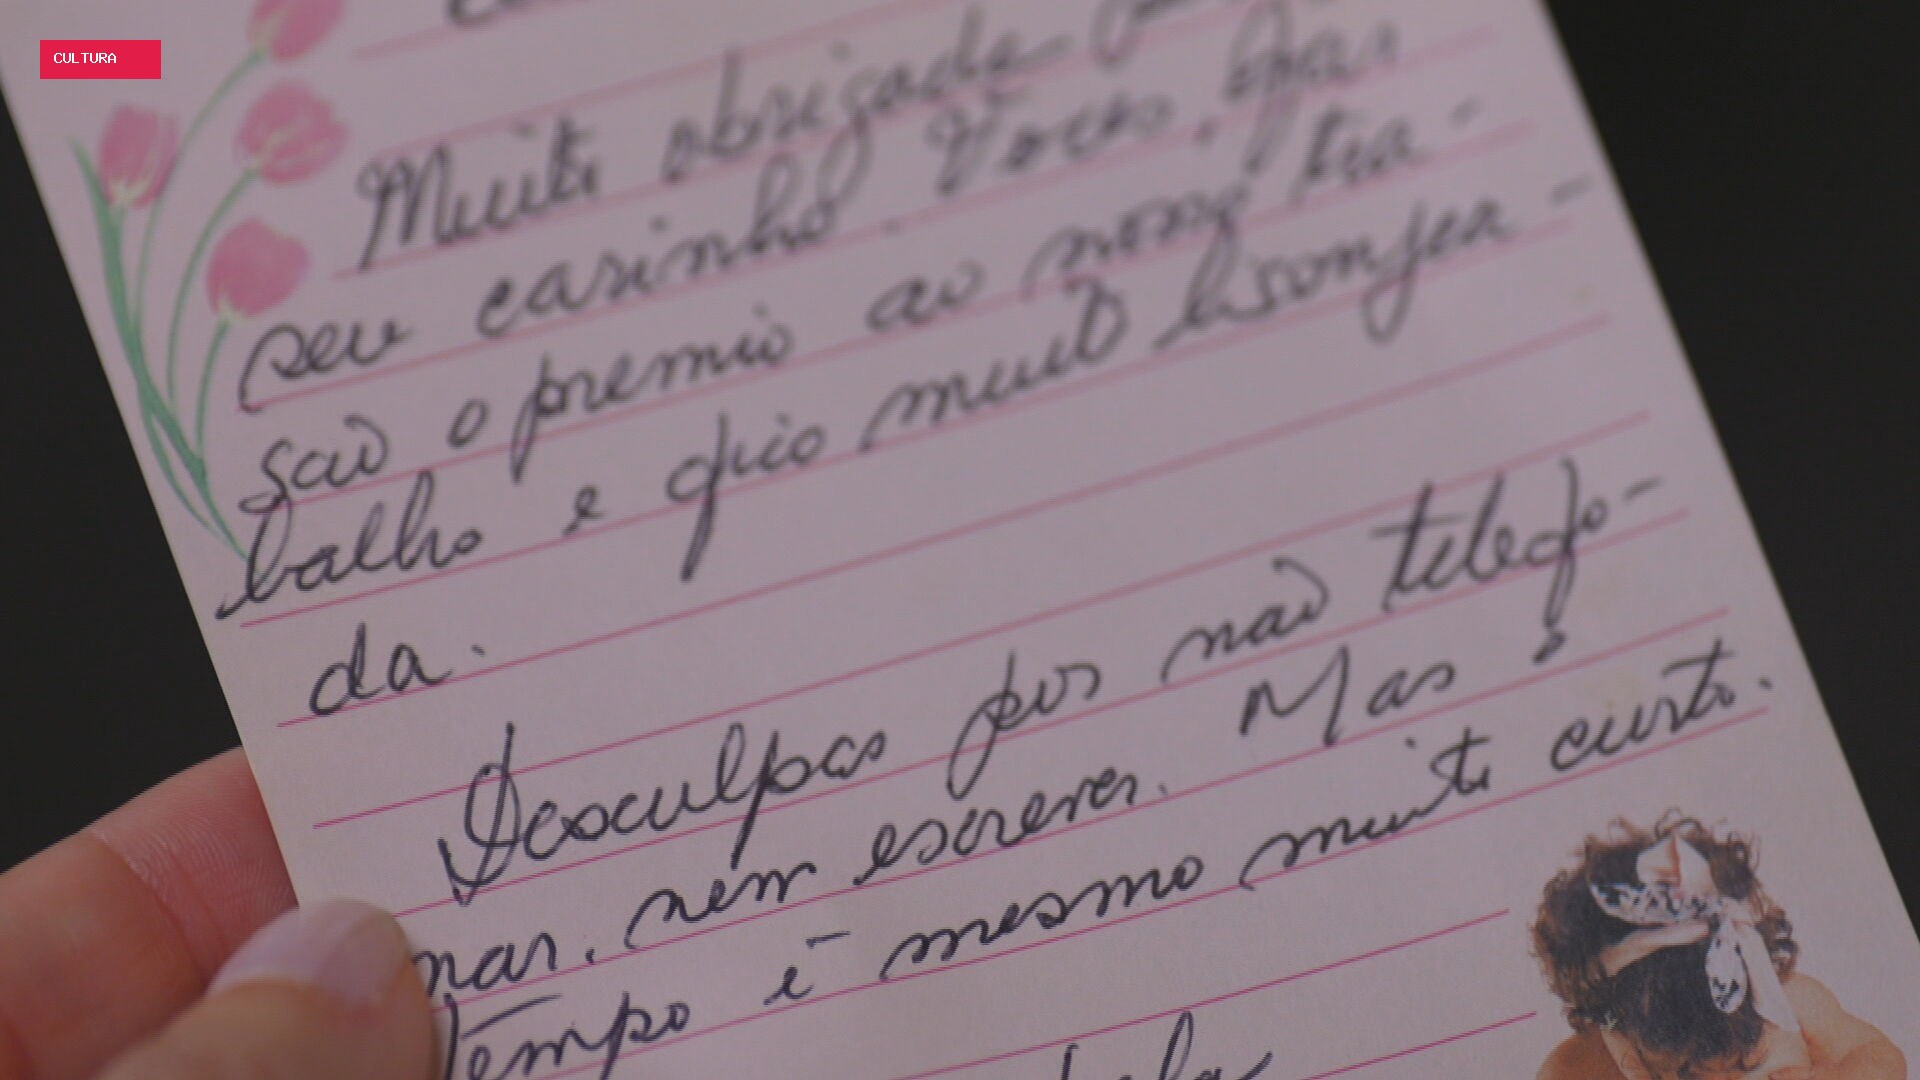 CULTURA
Muito obrigada
seu carinho. Vocês, fãs
são o premio ao nosso tra-
balho e fico muito lisonjea-
da.
Desculpas por não telefo-
nar, nem escrever. Mas o
tempo é mesmo muito curto.